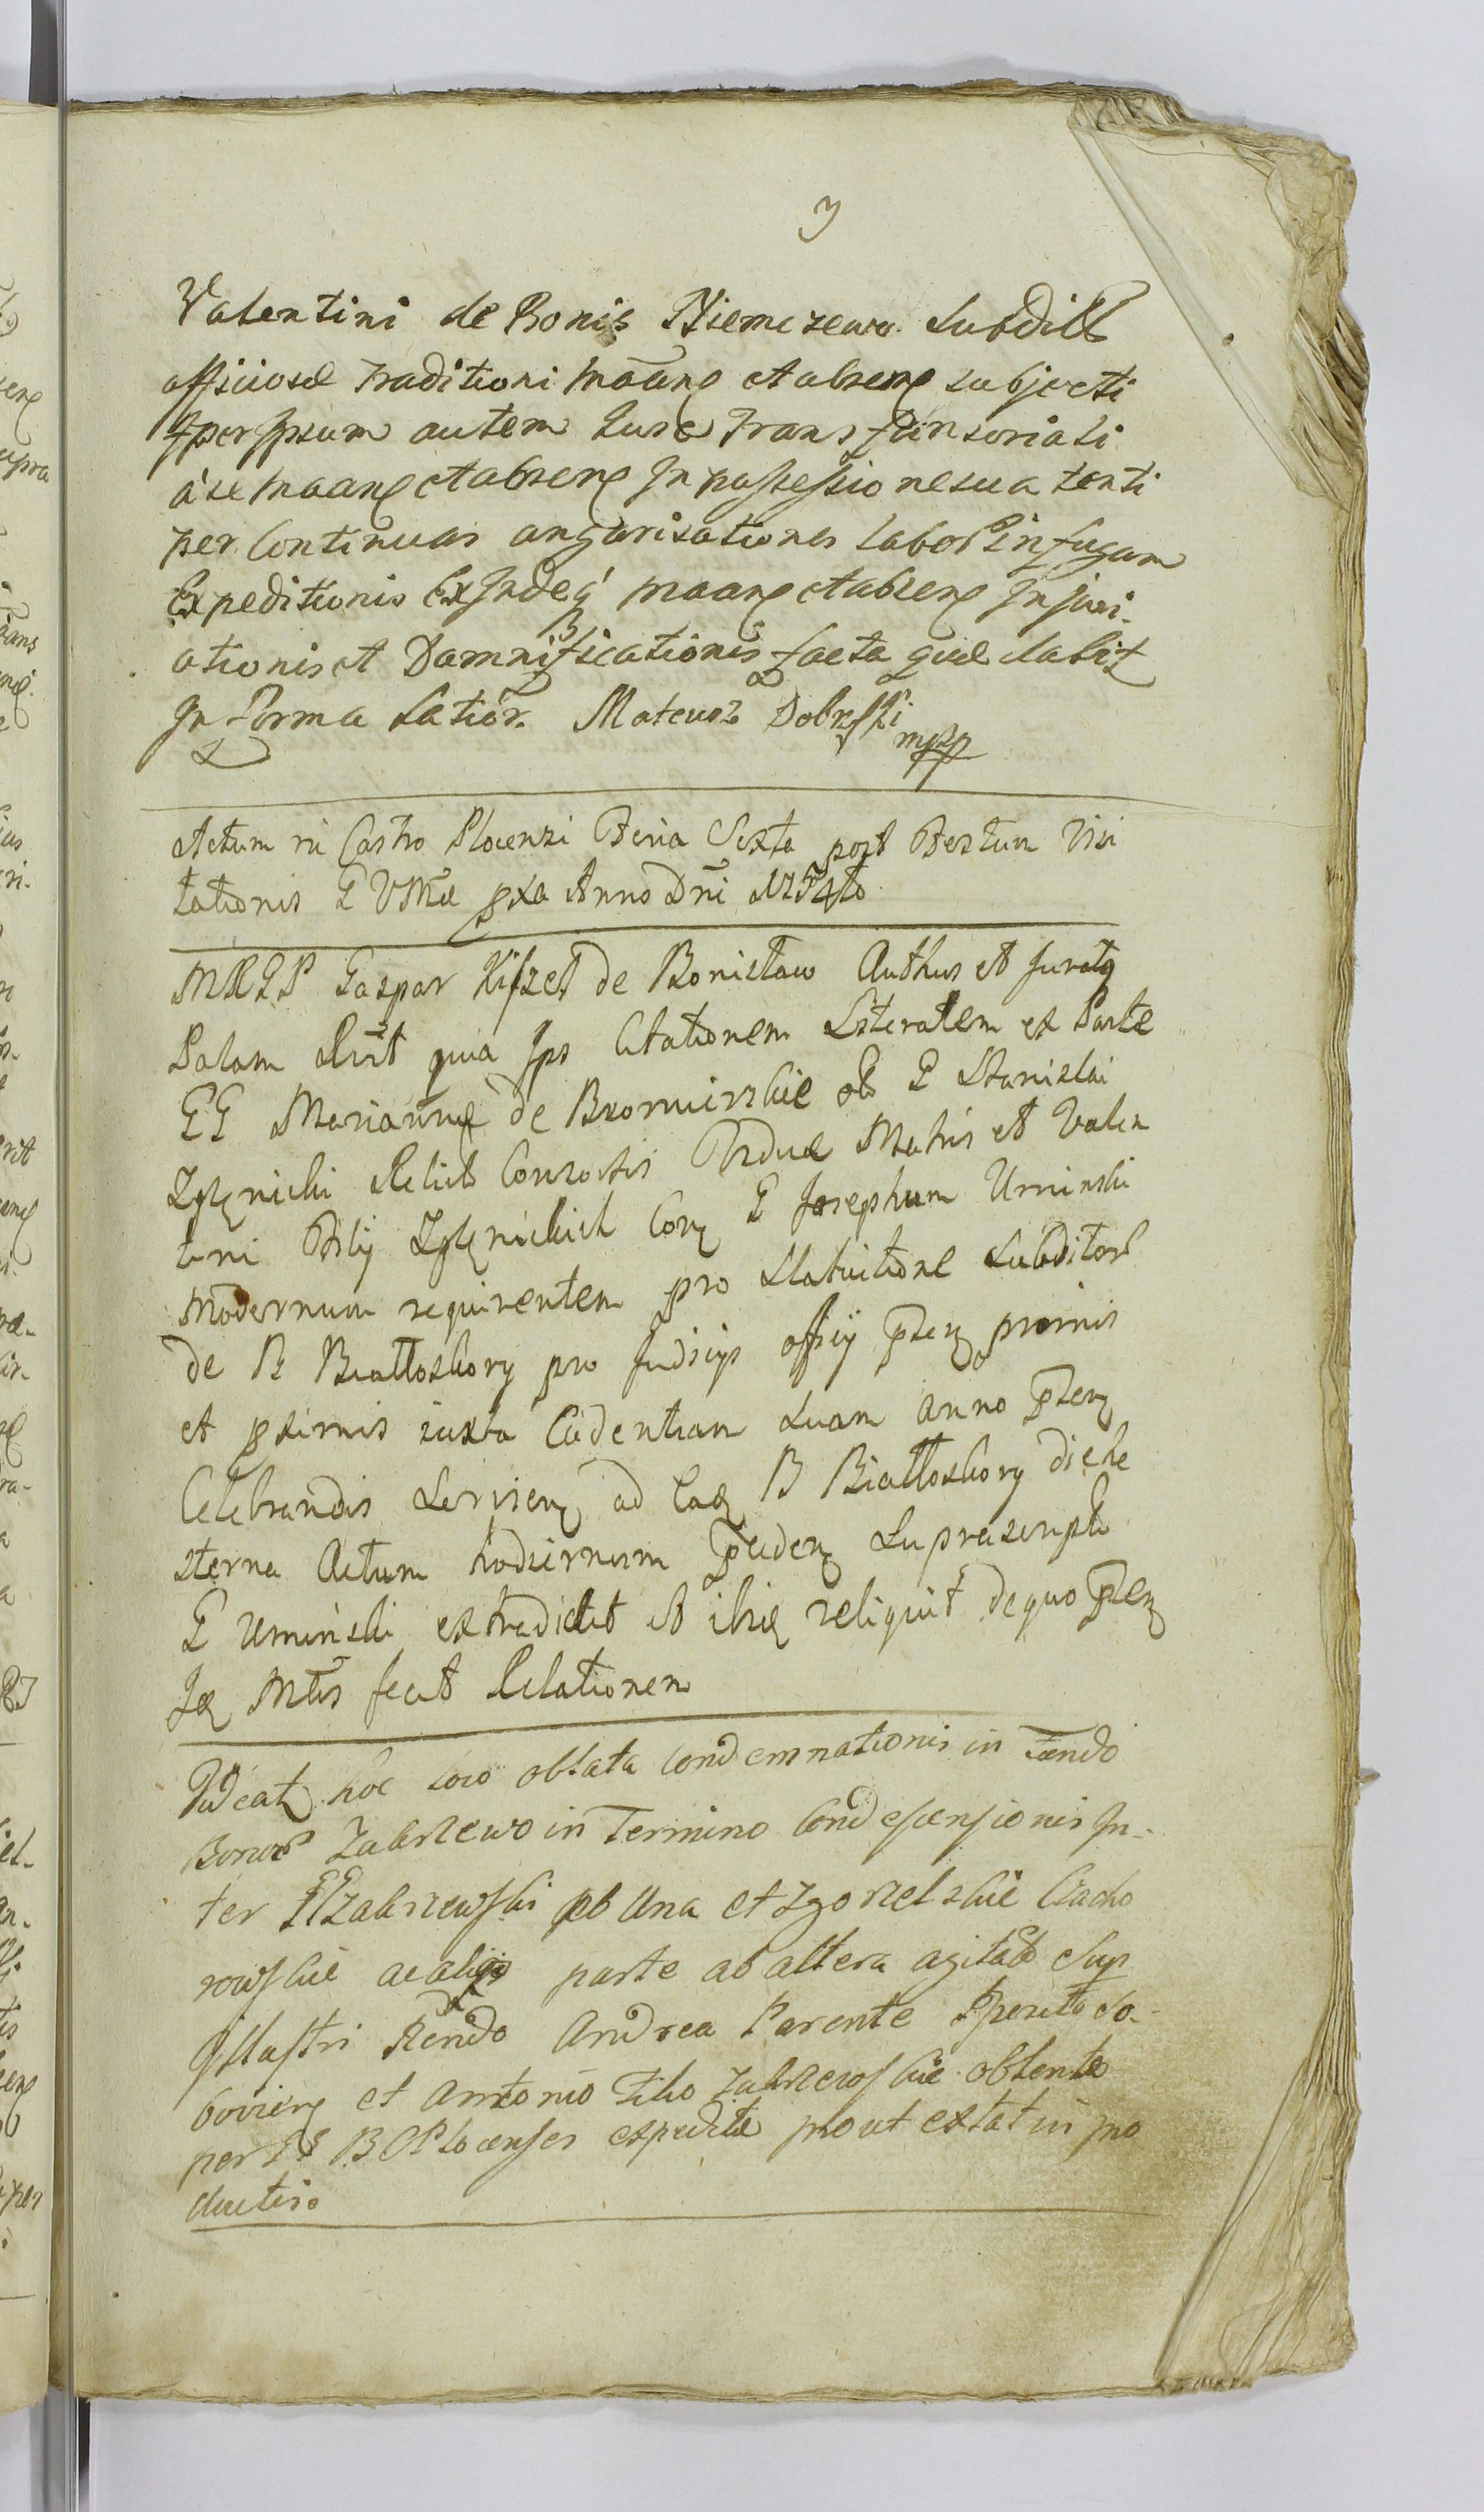 3
Valentini de Bonis Niemczewo Subditi
officiosae Traditioni maang et abseng subjecti
per Ipsum autem Jure Transfunsoriali
à se maang et abseng In possessione sua tenti
per Continuas angarisationes labor In fugam
Expeditionis ExIndeq maang et abseng Injuri-
ationis et Damnificationis facta quae dabit
In Forma Latior. Mateusz Dobrski mpp
Actum in Castro Plocensi Feria Sexta post Festum Visi
tationis B VMae pxa Anno Dni 1754to
MRGP Gaspar Kiszel de Bonislaw Authus et Juratq
Palam Rlt quia Ips Citationem Literalem ex Parte
GG Mariannae de Bromirskie ol G Stanislai
Zglenicki Relict Consortis Viduae Matris et Valen
tini Filij Zglenickich Cong G Josephum Uminski
Modernum requirentem pro Statuitione Subditor
de B Białłoskory pro Judicijs officij pteng primis
et pximis iuxta Cadentiam Suam anno pteng
Celebrandis Servieng ad Eaq B Białłoskory die he
sterna Actum hodiernum pcedeng Suprascripto
G Uminski extradidit et ibiq reliquit de quo pteng
Iq Mtrs fecit Relationem
Videatz hoc loco oblata Condemnationis in Fundo
Bonor Zakrzewo in Termino Condescensionis In-
ter GG Zakrzewski ab Una et Zgorzelskie Ciacho
rowskie ac alijs parte ab altera agitato Sup
Illustri Rendo Andrea Parente Sperito So-
bovieng et Antonio Filio Zakrzewskie obtento
per BOPlocenses expedite prout extat in pro
ductis.